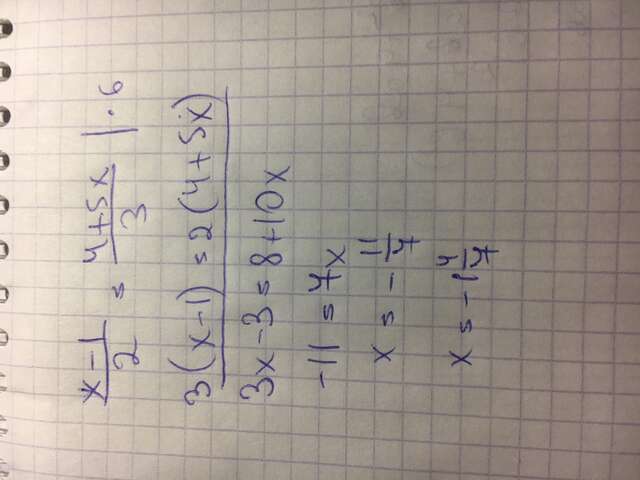 x-1/2 = 4+5x/3 | · 6
3(x-1) = 2(4+5x)
3x-3 = 8+10x
-11 = 7x
x = -11/7
x = -1 4/7